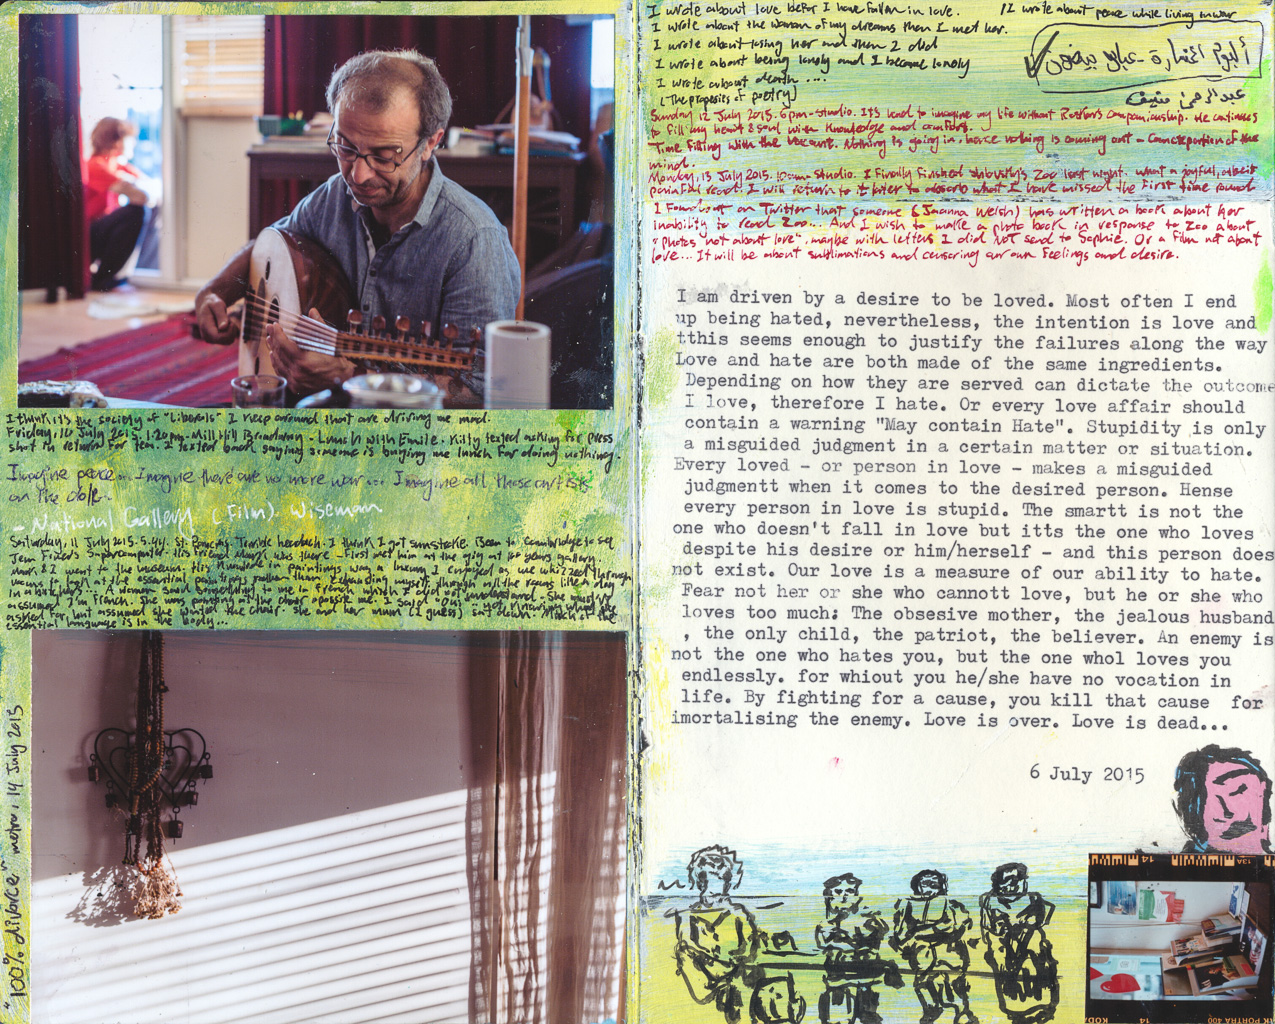 I think it's the society of "Liberals" I keep around that are driving me mad.
Friday, 10 July 2015. 1.20pm. Mill Hill Broadway - Lunch with Emile. Kitty texted asking for press
shot in return for tea. I texted back saying someone is buying me lunch for doing nothing.
Imagine peace... Imagine there are no more war... Imagine all those artists
on the dole.
- National Gallery (Film). Wiseman
Saturday, 11 July 2015. St. Pancras. Terrible headach. I think I got sunstroke. Been to Cambridge to see
Supercomputer. His friend Mark was there - First met him at the gig at
& I went to the museum. this in paintings was a luxury I enjoyed as we whizzed through
rooms to look at the essential paintings rather than myself through all the rooms like a
in a butchers. A woman said something to me in French which I did not understand. She must've
assumed I'm French. She was pointing at the chair opposite me. I said "Oui" not knowing what she
asked for but assumed she wanted the chair. She and her mum (I guess) sat down. Much of the
essential language is in the body...
"100% divorce" metro, 14 July 2015
I wrote about love befor I have fallen in love.
// I wrote about peace while living in war
I wrote about the woman of my dreams then I met her.
I wrote about losing her and then I did
I wrote about being lonely and I became lonely
I wrote about death ....
(The properties of poetry)
عبد الرحمن منيف
Sunday 12 July 2015. 6pm - studio. It's hard to imagine my life without companionship. He continues
to fill my heart & soul with knowledge and comfort.
Time filling with the vacant. Nothing is going in, hence nothing is coming out - of the
mind.
Monday, 13 July 2015. 10am - studio. I finally finished Shlovsky's Zoo last night. what a joyful, albeit
painful read. I will return to it later to absorb what I have missed the first time round
I found out on Twitter that someone (Joanna Welsh) has written a book about her
inability to read Zoo... And I wish to make a photo book in response to Zoo about
"photos not about love". maybe with letters I did NOT send to Sophie. Or a film not about
love... It will be about sublimations and censoring our own feelings and desire.
I am driven by a desire to be loved. Most often I end
up being hated, nevertheless, the intention is love and
tthis seems enough to justify the failures along the way
Love and hate are both made of the same ingredients.
Depending on how they are served can dictate the outcome
I love, therefore I hate. Or every love affair should
contain a warning "May contain Hate". Stupidity is only
a misguided judgment in a certain matter or situation.
Every loved - or person in love - makes a misguided
judgmentt when it comes to the desired person. Hense
every person in love is stupid. The smartt is not the
one who doesn't fall in love but itts the one who loves
despite his desire or him/herself - and this person does
not exist. Our love is a measure of our ability to hate.
Fear not her or she who cannott love, but he or she who
loves too much: The obsesive mother, the jealous husband
, the only child, the patriot, the believer. An enemy is
not the one who hates you, but the one whol loves you
endlessly. for whiout you he/she have no vocation in
life. By fighting for a cause, you kill that cause for
imortalising the enemy. Love is over. Love is dead...
6 July 2015
14
13A
KODA
14
AK PORTRA 400